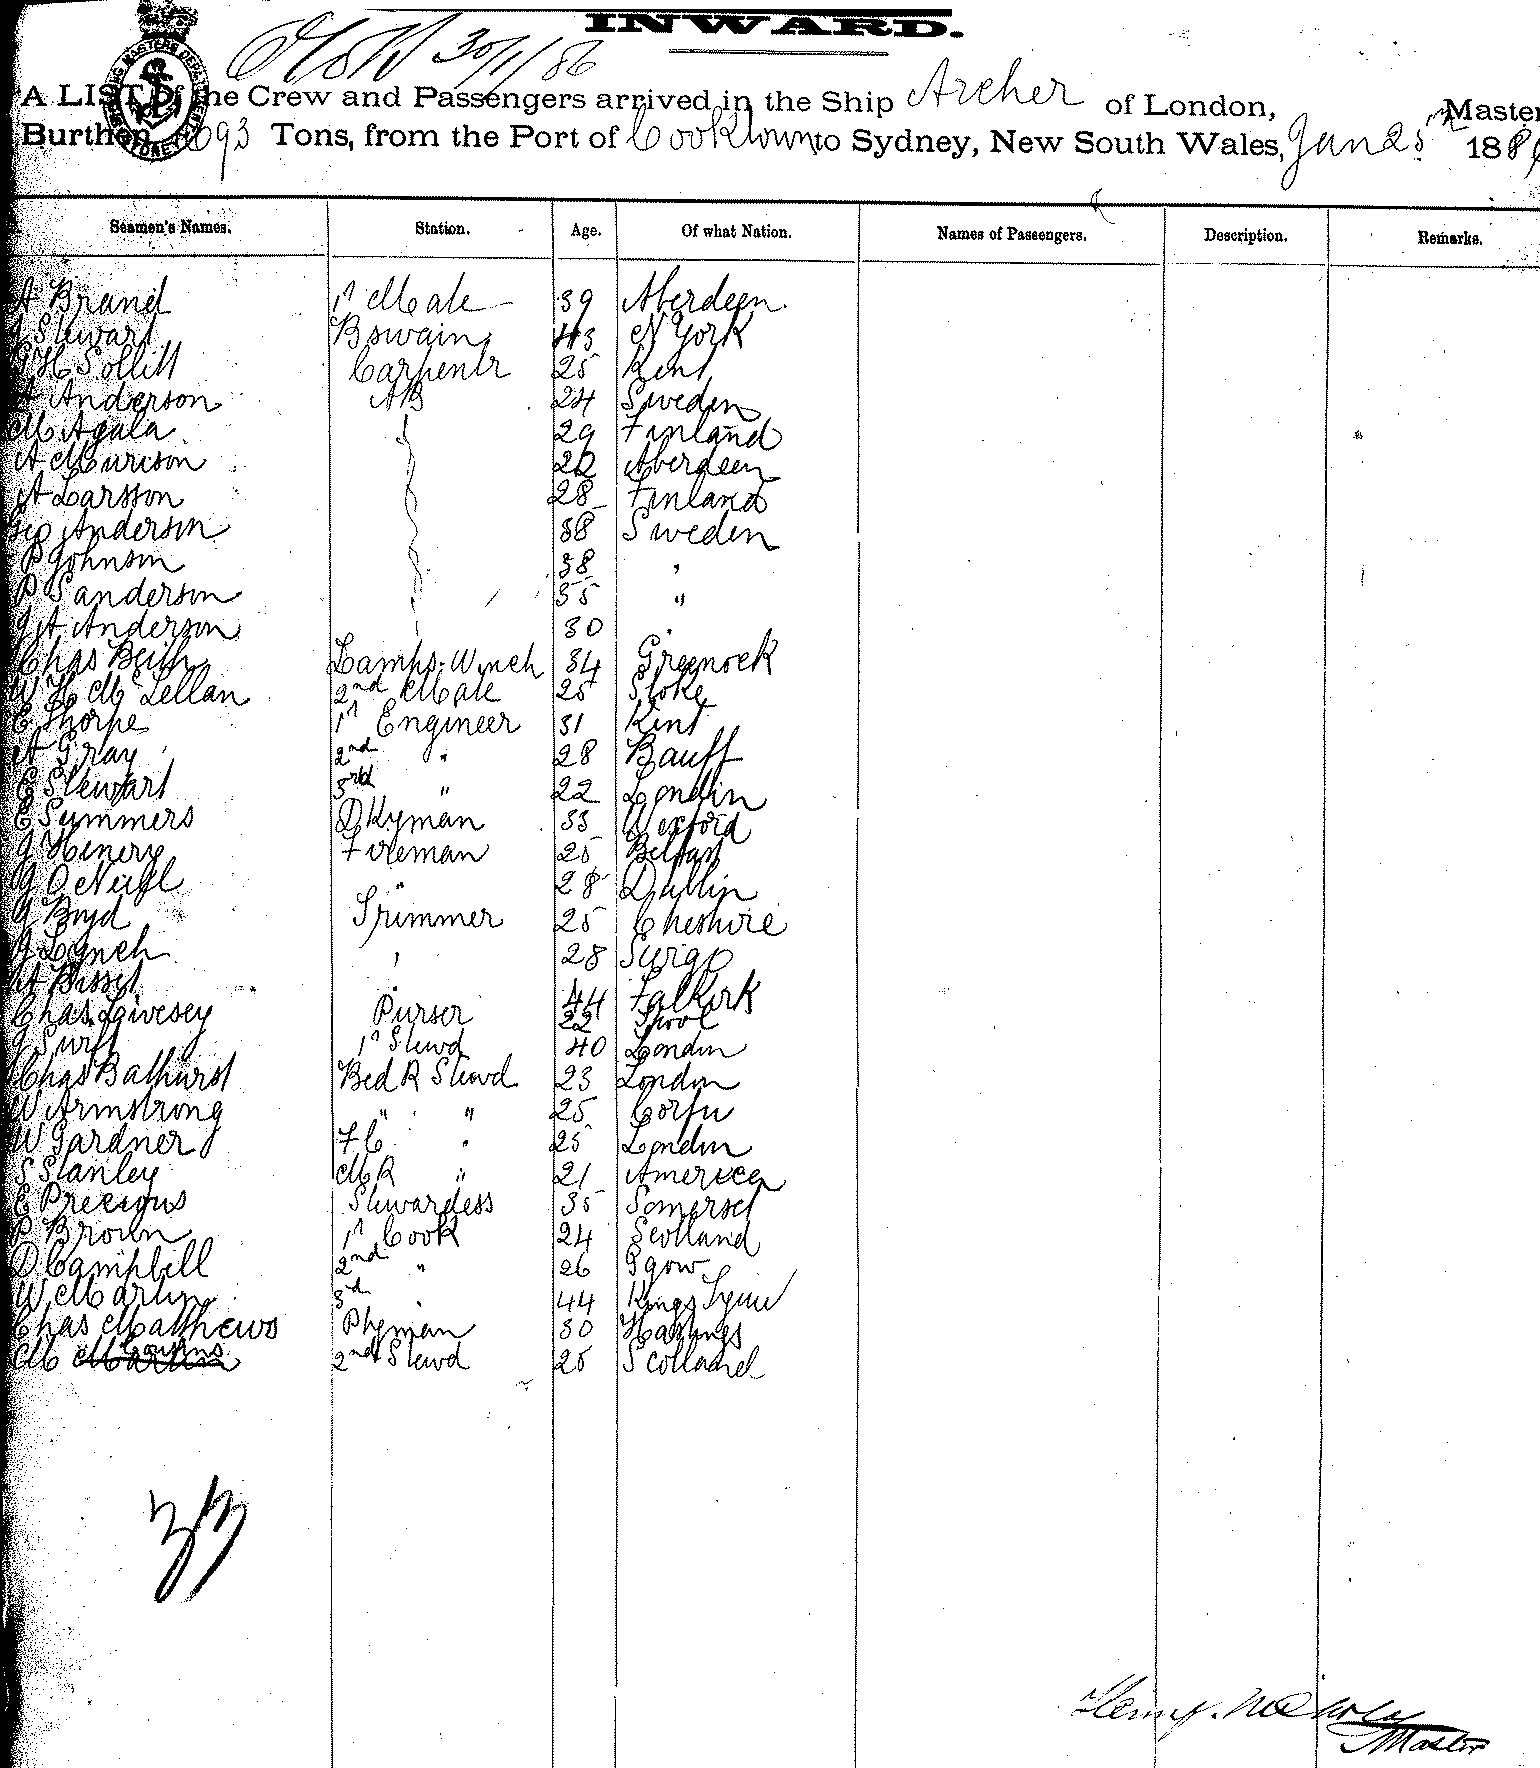 INWARD.
30/1/86
A LIST of the Crew and Passengers arrived in the Ship Archer of London, Master
Burthen 693 Tons, from the Port of Cooktown to Sydney, New South Wales, Jan 25th 1886
Seamen's Names. Station. Age. Of what Nation. Names of Passengers. Description. Remarks.
A Brand 1st Mate 39 Aberdeen
J Stewart Bswain 43 N York
H Sollitt Carpentr 25 Kent
A Anderson AB 24 Sweden
M Agala 29 Finland
A Murison 22 Aberdeen
A Larsson 28 Finland
Geo Anderson 38 Sweden
P Johnson 38 "
P Sanderson 35 "
J A Anderson 30
Chas Beith Lamps. Winch 34 Greenock
W H McLellan 2nd Mate 25 Stoke
E Thorpe 1st Engineer 31 Kent
A Gray 2nd " 28 Banff
E Stewart 3rd " 22 London
E Summers DKyman 33 Wexford
J Henery Fireman 25 Belfast
J O Neill " 28 Dublin
J Boyd Trimmer 25 Cheshire
J Lynch " 28
A Bisset 44 Falkirk
Chas Livesey Purser 22 Lpool
J Swift 1st Stewd 40 London
Chas Bathurst Bed R Stewd 23 London
W Armstrong " " 25 Corfu
W Gardner F C " 25 London
S Stanley M R " 21 America
E Precious Stewardess 35 Somerset
P Brown 1st Cook 24 Scotland
D Campbell 2nd " 26 Ggow
W Martin 3rd 44 Kings Lynn
Chas Matthews Ptyman 30 Hastings
M Martin Cousins 2nd Stewd 25 Scotland
33
Henry
Master